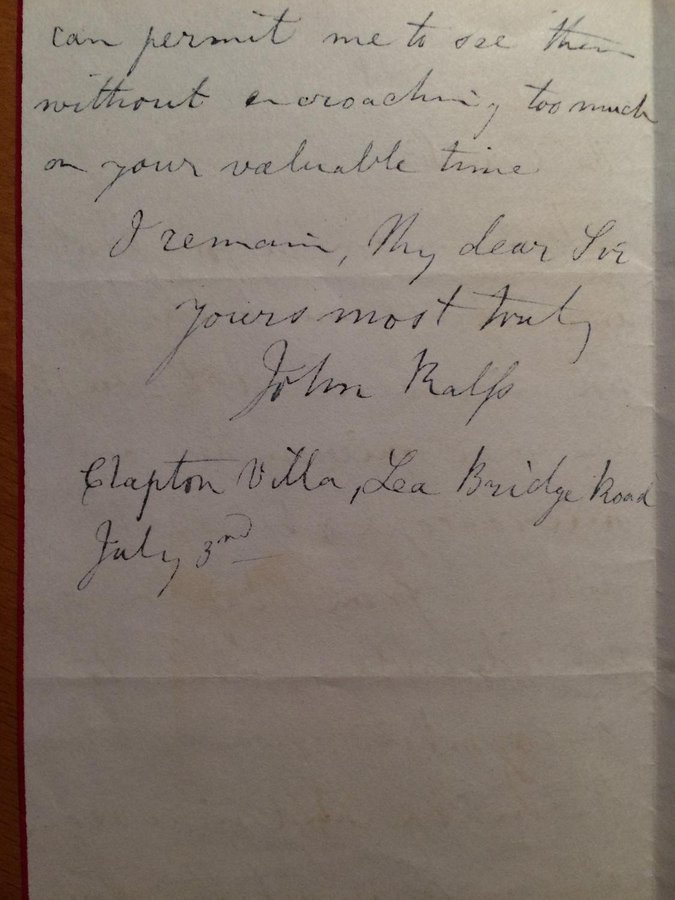 can permit me to see them
without encroaching too much
on your valuable time
I remain, My dear Sir
yours most truly
John Ralfs
Clapton Villa, Lea Bridge Road
July 3nd